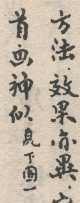 方法效果亦異
首与神似見下图一